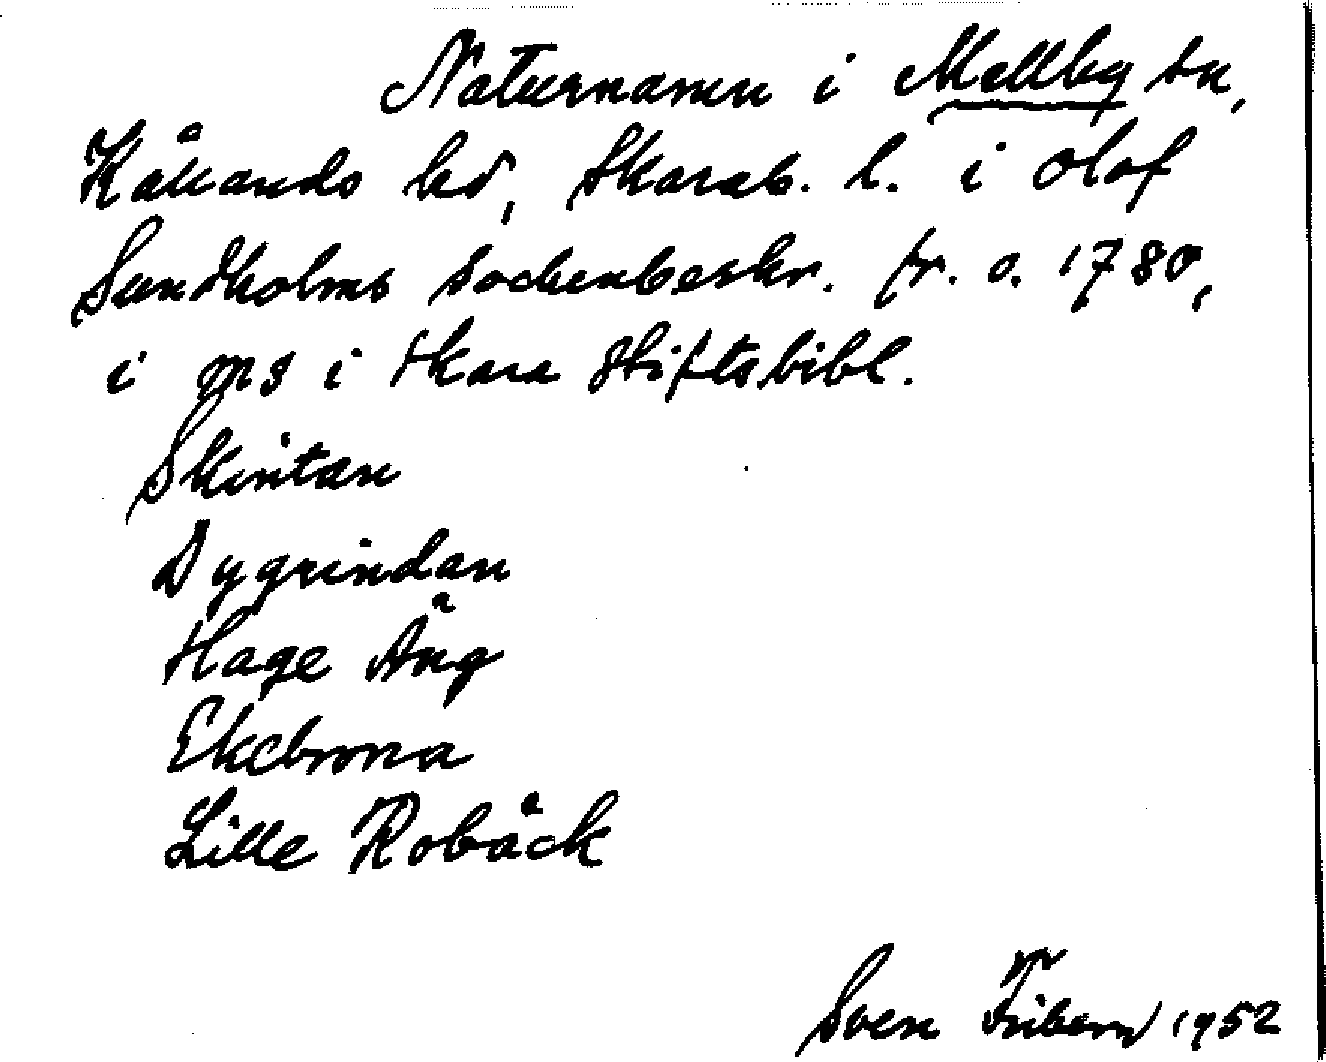 Naturnamn i Mellby sn,
Kållands hd, Skarab. l. i Olof
Sundholms sockenbeskr. fr. o. 1780,
i ms i Skara Stiftsbibl.
Skintan
Dygrindan
Hage Äng
Ekebrona
Lille Robäck
Sven 1952